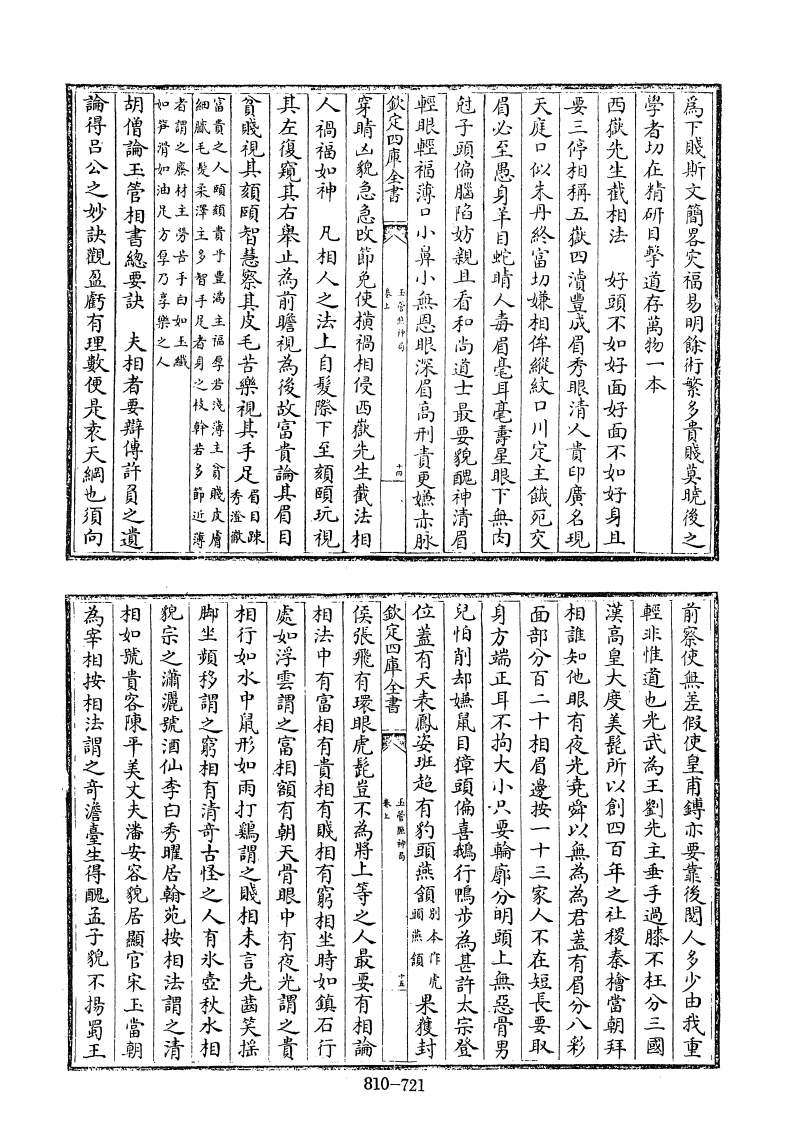 爲下賤斯文簡畧灾福易明餘術繁多貴賤莫曉後之
學者切在精研目擊道存萬物一本
西嶽先生截相法　好頭不如好面好面不如好身且
要三停相稱五嶽四瀆豐成眉秀眼清人貴印廣名現
天庭口似朱丹終富切嫌相侔縱紋口川定主餓死交
眉必至愚身羊目蛇睛人毒眉毫耳毫壽星眼下無肉
尅子頭偏腦陷妨親且看和尚道士最要貌醜神清眉
輕眼輕福薄口小鼻小無恩眼深眉高刑責更嫌赤脉
欽定四庫全書
玉管照神局
卷上
十四
穿睛凶貌急急改節免使橫禍相侵西嶽先生截法相
人禍福如神　凡相人之法上自髮際下至頦頤玩視
其左復窺其右舉止為前瞻視為後故富貴論其眉目
貧賤視其頦頤智慧察其皮毛苦樂視其手足
眉目踈
秀澄徹
富貴之人頤頦貴乎豐滿主福厚若淺薄主貧賤皮膚
細膩毛髮柔澤主多智手足者身之枝幹若多節近薄
者謂之廢材主勞苦手白如玉纖
如笋滑如油足方厚乃享樂之人
胡僧論玉管相書總要訣　夫相者要辯傳許負之遺
論得吕公之妙訣觀盈虧有理數便是袁天綱也須向
前察使無差假使皇甫鏄亦要靠後閲人多少由我重
輕非惟道也光武為王劉先主垂手過膝不枉分三國
漢高皇大度美髭所以創四百年之社稷秦檜當朝拜
相誰知他眼有夜光堯舜以無為為君蓋有眉分八彩
面部分百二十相眉邊按一十三家人不在短長要取
身方端正耳不拘大小只要輪廓分明頭上無惡骨男
兒怕削却嫌鼠目獐頭偏喜鵝行鴨步為甚許太宗登
位蓋有天表鳳姿班超有豹頭燕頷
别本作虎
頭燕頷
果獲封
欽定四庫全書
玉管照神局
卷上
十五
侯張飛有環眼虎髭豈不為將上等之人最要有相論
相法中有富相有貴相有賤相有窮相坐時如鎮石行
處如浮雲謂之富相額有朝天骨眼中有夜光謂之貴
相行如水中鼠形如雨打鷄謂之賤相未言先齒笑揺
脚坐頻移謂之窮相有清奇古怪之人有氷壺秋水相
貌宗之瀟灑號酒仙李白秀曜居翰苑按相法謂之清
相如號貴客陳平美丈夫潘安容貌居顯官宋玉當朝
為宰相按相法謂之奇澹臺生得醜孟子貌不揚蜀王
810-721